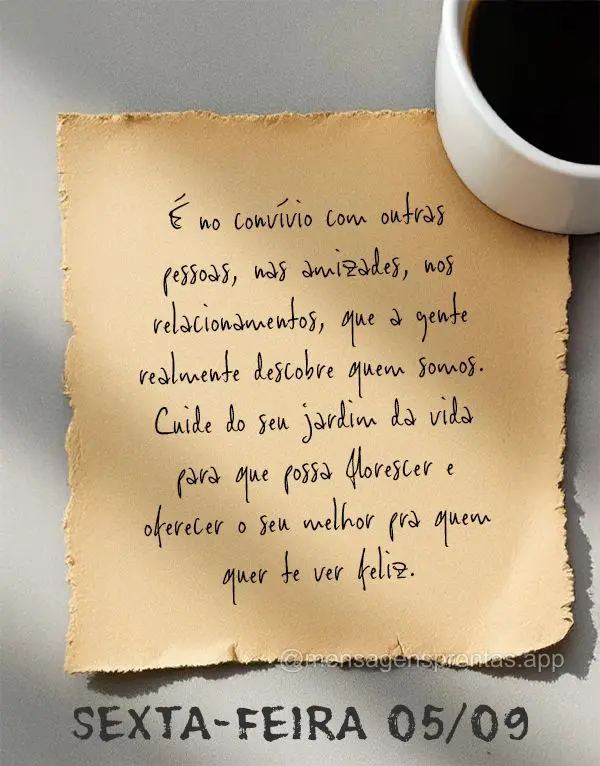 É no convívio com outras
pessoas, nas amizades, nos
relacionamentos, que a gente
realmente descobre quem somos.
Cuide do seu jardim da vida
para que possa florescer e
oferecer o seu melhor pra quem
quer te ver feliz.
@mensagensprontas.app
SEXTA-FEIRA 05/09